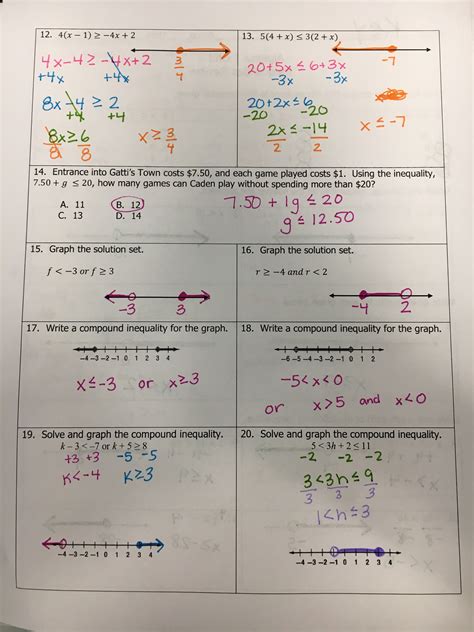 12. 4(x − 1) ≥ −4x + 2
4x-4 ≥ -4x+2
+4x +4x
8x-4 ≥ 2
+4 +4
8x ≥ 6
8 8
x ≥ 3/4
3/4
13. 5(4 + x) ≤ 3(2 + x)
20+5x ≤ 6+3x
-3x -3x
20+2x ≤ 6
-20 -20
2x ≤ -14
2 2
x ≤ -7
-7
14. Entrance into Gatti's Town costs $7.50, and each game played costs $1. Using the inequality,
7.50 + g ≤ 20, how many games can Caden play without spending more than $20?
A. 11 B. 12
C. 13 D. 14
7.50 + 1g ≤ 20
g ≤ 12.50
15. Graph the solution set.
f < −3 or f ≥ 3
-3 3
16. Graph the solution set.
r ≥ −4 and r < 2
-4 2
17. Write a compound inequality for the graph.
-4 -3 -2 -1 0 1 2 3 4
x ≤ -3 or x ≥ 3
18. Write a compound inequality for the graph.
-6 -5 -4 -3 -2 -1 0 1 2
-5 < x < 0
or x > 5 and x < 0
19. Solve and graph the compound inequality.
k − 3 < −7 or k + 5 ≥ 8
+3 +3 -5 -5
K < -4 K ≥ 3
-4 -3 -2 -1 0 1 2 3 4
20. Solve and graph the compound inequality.
5 < 3h + 2 ≤ 11
-2 -2 -2
3 < 3h ≤ 9
3 3 3
1 < h ≤ 3
-4 -3 -2 -1 0 1 2 3 4